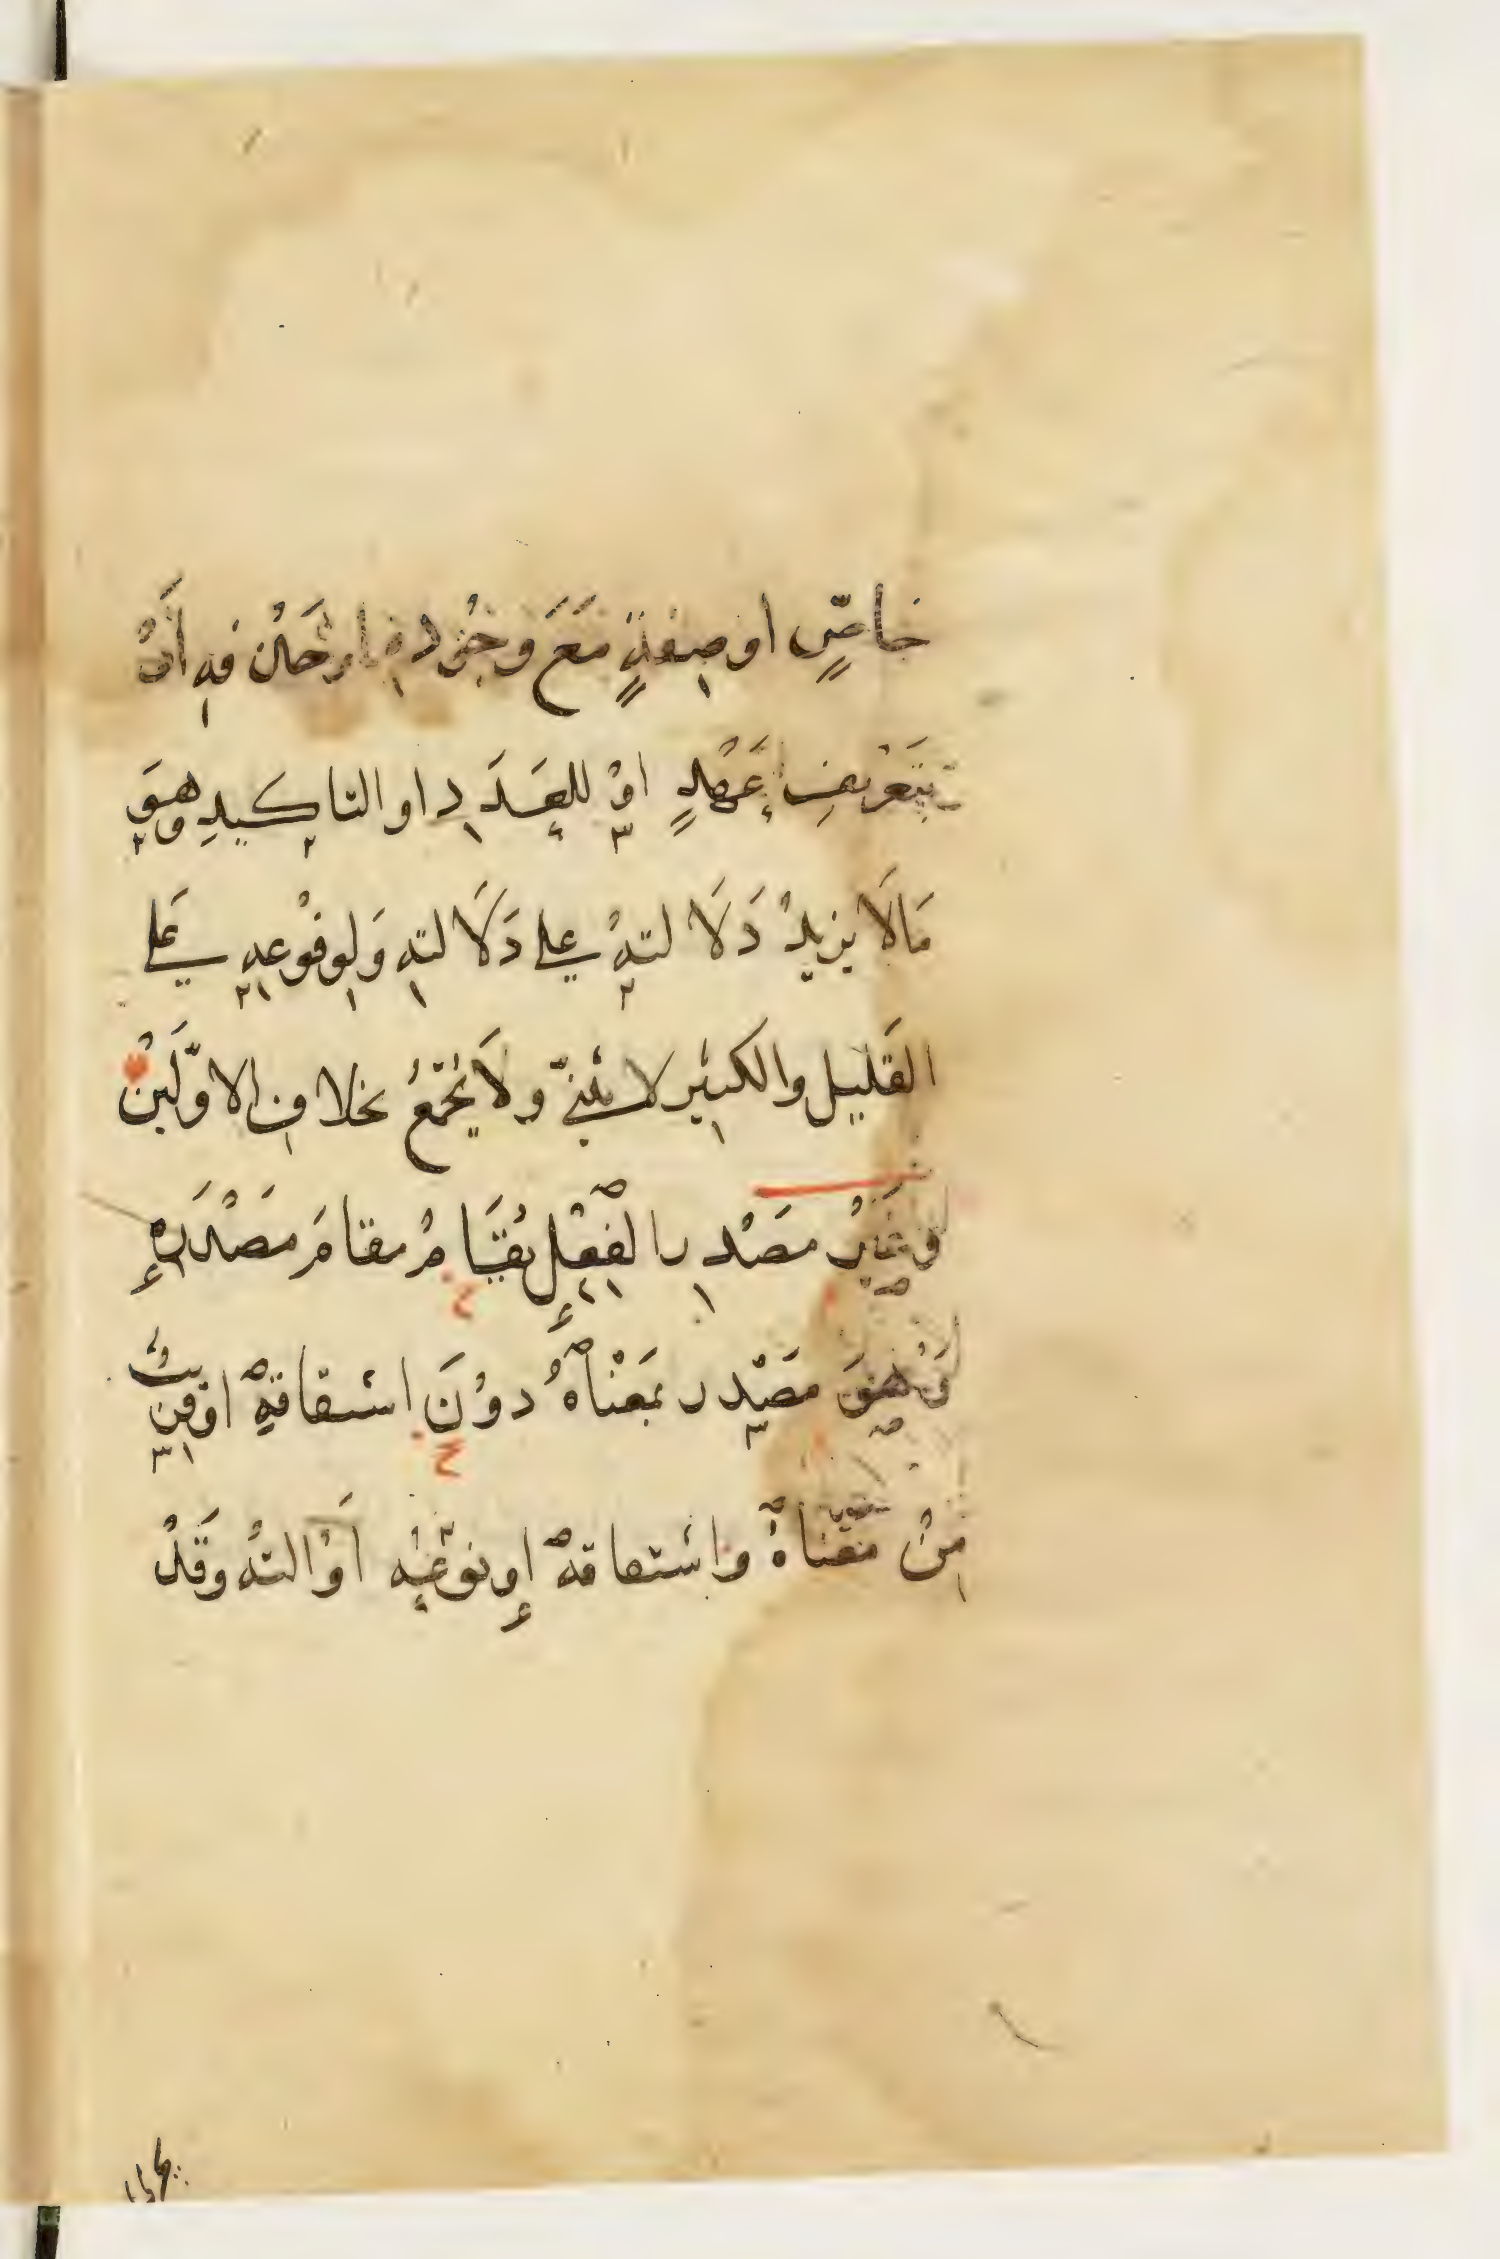 خاصٍّ او صِفَةٍ مَعَ وجُود فيه اَوْ
بتَعْريفِ عَهْدٍ اوْ للعَدَدِ او التاكيدِ وهوَ
مَالَا يزيدُ دَلَا لتهُ على دَلَا لته وَلوقوْعه على
القَليل والكثير لا يثنىّ ولَا يُجْمَعُ بخلاف الاوّلَينْ
وغَيْرُ مصَدْر الفِعْلِ يُقَامُ مقامَ مصَدْرَهِ
هوَ مصَدْر بمَعْناهُ دوُنَ اشتقاقهِ اوْ
مِنْ مَعْناهُ واشتقاقهِ او نوْعِهِ اَوْ التهُ وقَدْ